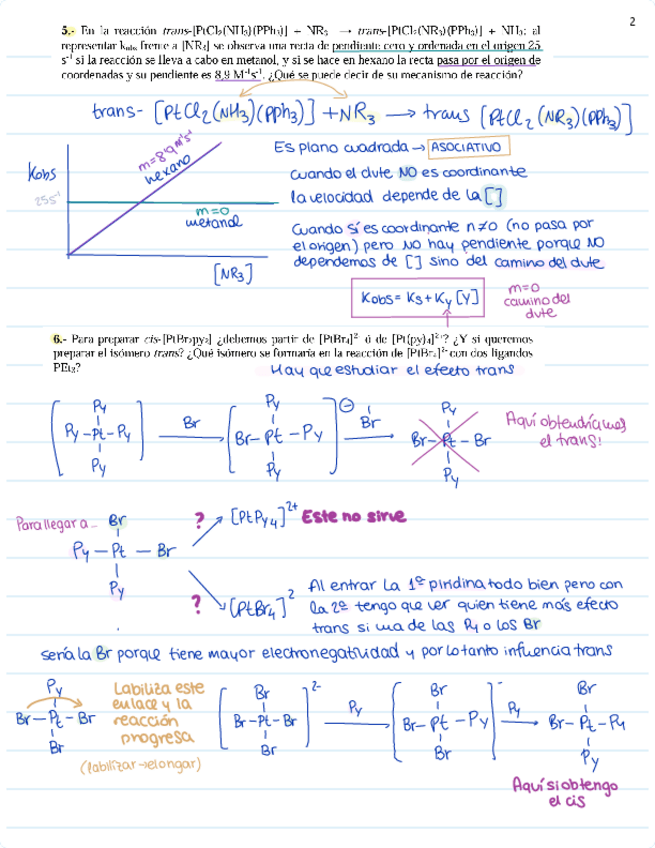 2
5.- En la reacción trans-[PtCl₂(NH₃)(PPh₃)] + NR₃ → trans-[PtCl₂(NR₃)(PPh₃)] + NH₃; al
representar kobs frente a [NR₃] se observa una recta de pendiente cero y ordenada en el origen 25
s⁻¹ si la reacción se lleva a cabo en metanol, y si se hace en hexano la recta pasa por el origen de
coordenadas y su pendiente es 8,9 M⁻¹s⁻¹. ¿Qué se puede decir de su mecanismo de reacción?
trans- [PtCl₂(NH₃)(PPh₃)] + NR₃ → trans [PtCl₂(NR₃)(PPh₃)]
Es plano cuadrada → ASOCIATIVO
Kobs
m=8'9 M⁻¹s⁻¹
hexano
cuando el dvte NO es coordinante
la velocidad depende de la []
25s⁻¹
m=0
metanol
Cuando sí es coordinante n≠0 (no pasa por
el origen) pero NO hay pendiente porque NO
dependemos de [] sino del camino del dvte
[NR₃]
Kobs = Ks + Ky [Y]
m=0
camino del
dvte
6.- Para preparar cis-[PtBr₂py₂] ¿debemos partir de [PtBr₄]²⁻ ó de [Pt(py)₄]²⁺? ¿Y si queremos
preparar el isómero trans? ¿Qué isómero se formaría en la reacción de [PtBr₄]²⁻ con dos ligandos
PEt₃?
Hay que estudiar el efecto trans
Py
Py-Pt-Py
Py
Br
Py
Br-Pt-Py
Py
Br
Py
Br-Pt-Br
Py
Aquí obtendríamos
el trans!
Para llegar a..
Br
Py-Pt-Br
Py
?
[PtPy₄]²⁺ Este no sirve
?
[PtBr₄]²
Al entrar la 1º piridina todo bien pero con
la 2º tengo que ver quien tiene más efecto
trans si una de las Py o los Br
sería la Br porque tiene mayor electronegatividad y por lo tanto influencia trans
Py
Br-Pt-Br
Br
Labiliza este
enlace y la
reacción
progresa
(labilizar→elongar)
Br
Br-Pt-Br
Br
2-
Py
Br
Br-Pt-Py
Br
-
Py
Br
Br-Pt-Py
Py
Aquí si obtengo
el cis